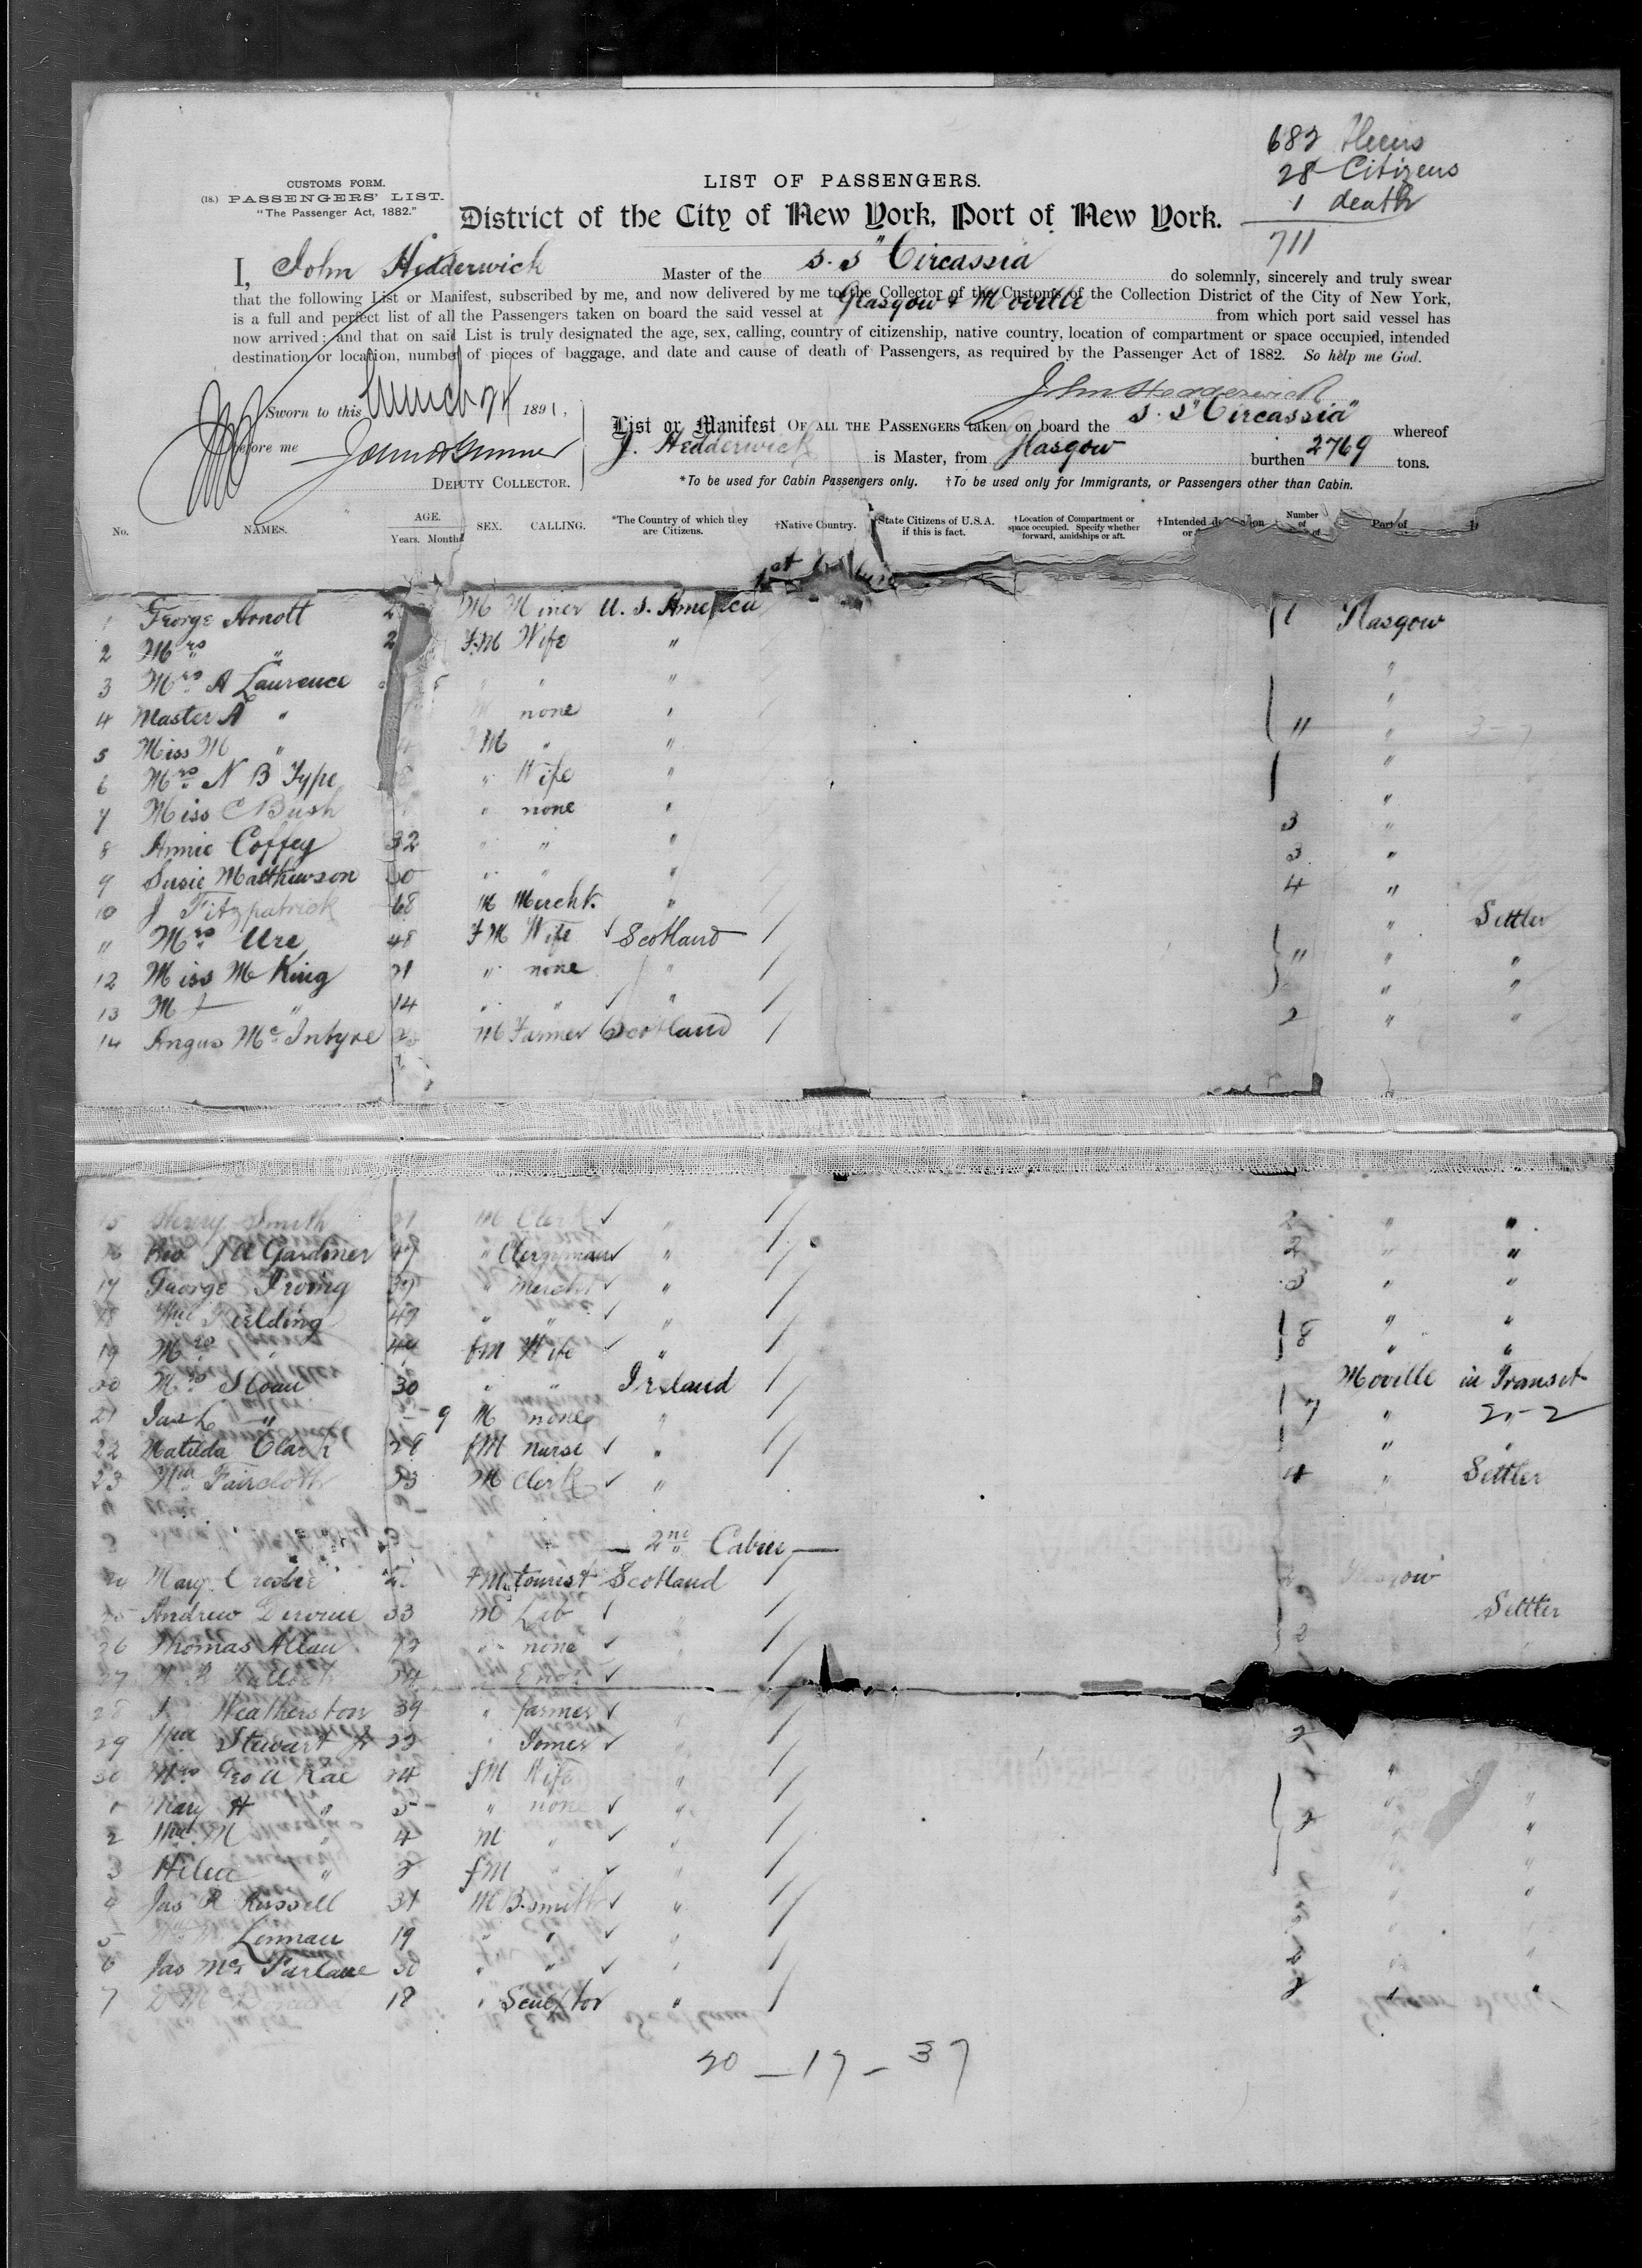 682 Aliens
28 Citizens
1 death
711
CUSTOMS FORM.
(18.) PASSENGERS' LIST.
"The Passenger Act, 1882."
LIST OF PASSENGERS.
District of the City of New York, Port of New York.
I, John Hedderwick Master of the S. S "Circassia do solemnly, sincerely and truly swear
that the following List or Manifest, subscribed by me, and now delivered by me to the Collector of the Customs of the Collection District of the City of New York,
is a full and perfect list of all the Passengers taken on board the said vessel at Glasgow & Moville from which port said vessel has
now arrived; and that on said List is truly designated the age, sex, calling, country of citizenship, native country, location of compartment or space occupied, intended
destination or location, number of pieces of baggage, and date and cause of death of Passengers, as required by the Passenger Act of 1882. So help me God.
John Hedderwick
Sworn to this March 24 1891,
before me
DEPUTY COLLECTOR.
List or Manifest OF ALL THE PASSENGERS taken on board the S. S "Circassia" whereof
J. Hedderwick is Master, from Glasgow burthen 2769 tons.
*To be used for Cabin Passengers only. †To be used only for Immigrants, or Passengers other than Cabin.
No. NAMES. AGE. Years. Months SEX. CALLING. *The Country of which they are Citizens. †Native Country. †State Citizens of U.S.A. if this is fact. †Location of Compartment or space occupied. Specify whether forward, amidships or aft. †Intended Number of Part of
1 George Arnott 2 M Miner U. S. America 1 Glasgow
2 Mrs " 2 F.M Wife " "
3 Mrs A Laurence " " " "
4 Master A " none " "
5 Miss M " M " " " "
6 Mrs N B Type " Wife " "
7 Miss C Bush " none " "
8 Annie Coffey 32 " " " 3 "
9 Susie Matthewson 30 " " " 3 "
10 J Fitzpatrick 68 M Mercht. " 4 "
" Mrs Ure 48 F M Wife Scotland " Settler
12 Miss M King 21 " none " " " "
13 M " 14 " " " " "
14 Angus McIntyre M Farmer Scotland 2 " "
15 Henry Smith 21 M Clerk " 2 " "
16 Rev J A Gardiner 47 " Clergyman " 2 " "
17 George Irving 37 " Mercht " 3 " "
18 Wm Fielding 49 " " " " "
19 Mrs " 44 fM Wife " 8 " "
20 Mrs Sloan 30 " " Ireland Moville in Transit
21 Jas L " 9 M none " 7 "
22 Matilda Clark 28 fM nurse " " "
23 Wm Faircloth 23 M Clerk " 4 " Settler
— 2nd Cabin —
24 Mary Crosbie F M tourist Scotland Glasgow
25 Andrew 33 M Lab Settler
26 Thomas Allan none
27
28 Weatherston 39 " farmer
29 Wm Stewart Joiner 2
30 Mrs Geo A Rae 24 fM Wife " "
1 Mary H " 5 " none " "
2 Wm M " 4 M " " 2 "
3 Helen " 2 fM " "
4 Jas R Russell 31 M B.smith " "
5 Lennan 19 " "
6 Jas McFarlane 30 " " 2
7 18 " Sculptor " 2 " "
20 – 17 – 37